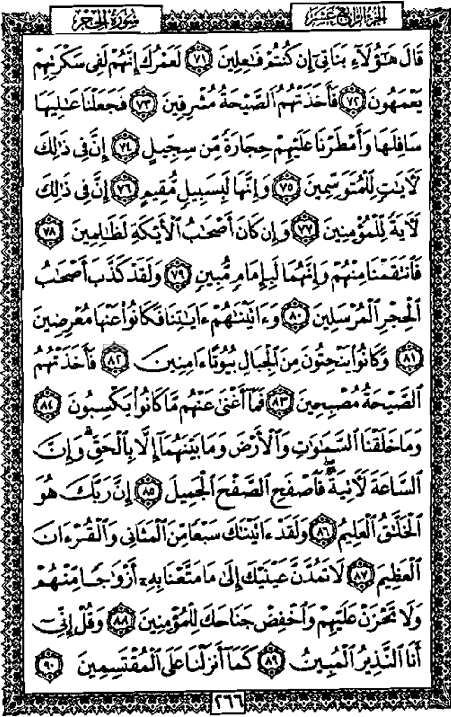 الجزء الرابع عشر
سورة الحجر
قَالَ هَٰٓؤُلَآءِ بَنَاتِىٓ إِن كُنتُمْ فَٰعِلِينَ ﴿٧١﴾ لَعَمْرُكَ إِنَّهُمْ لَفِى سَكْرَتِهِمْ
يَعْمَهُونَ ﴿٧٢﴾ فَأَخَذَتْهُمُ ٱلصَّيْحَةُ مُشْرِقِينَ ﴿٧٣﴾ فَجَعَلْنَا عَٰلِيَهَا
سَافِلَهَا وَأَمْطَرْنَا عَلَيْهِمْ حِجَارَةً مِّن سِجِّيلٍ ﴿٧٤﴾ إِنَّ فِى ذَٰلِكَ
لَءَايَٰتٍ لِّلْمُتَوَسِّمِينَ ﴿٧٥﴾ وَإِنَّهَا لَبِسَبِيلٍ مُّقِيمٍ ﴿٧٦﴾ إِنَّ فِى ذَٰلِكَ
لَءَايَةً لِّلْمُؤْمِنِينَ ﴿٧٧﴾ وَإِن كَانَ أَصْحَٰبُ ٱلْأَيْكَةِ لَظَٰلِمِينَ ﴿٧٨﴾
فَٱنتَقَمْنَا مِنْهُمْ وَإِنَّهُمَا لَبِإِمَامٍ مُّبِينٍ ﴿٧٩﴾ وَلَقَدْ كَذَّبَ أَصْحَٰبُ
ٱلْحِجْرِ ٱلْمُرْسَلِينَ ﴿٨٠﴾ وَءَاتَيْنَٰهُمْ ءَايَٰتِنَا فَكَانُوا۟ عَنْهَا مُعْرِضِينَ
﴿٨١﴾ وَكَانُوا۟ يَنْحِتُونَ مِنَ ٱلْجِبَالِ بُيُوتًا ءَامِنِينَ ﴿٨٢﴾ فَأَخَذَتْهُمُ
ٱلصَّيْحَةُ مُصْبِحِينَ ﴿٨٣﴾ فَمَآ أَغْنَىٰ عَنْهُم مَّا كَانُوا۟ يَكْسِبُونَ ﴿٨٤﴾
وَمَا خَلَقْنَا ٱلسَّمَٰوَٰتِ وَٱلْأَرْضَ وَمَا بَيْنَهُمَآ إِلَّا بِٱلْحَقِّ ۗ وَإِنَّ
ٱلسَّاعَةَ لَءَاتِيَةٌ ۖ فَٱصْفَحِ ٱلصَّفْحَ ٱلْجَمِيلَ ﴿٨٥﴾ إِنَّ رَبَّكَ هُوَ
ٱلْخَلَّٰقُ ٱلْعَلِيمُ ﴿٨٦﴾ وَلَقَدْ ءَاتَيْنَٰكَ سَبْعًا مِّنَ ٱلْمَثَانِى وَٱلْقُرْءَانَ
ٱلْعَظِيمَ ﴿٨٧﴾ لَا تَمُدَّنَّ عَيْنَيْكَ إِلَىٰ مَا مَتَّعْنَا بِهِۦٓ أَزْوَٰجًا مِّنْهُمْ
وَلَا تَحْزَنْ عَلَيْهِمْ وَٱخْفِضْ جَنَاحَكَ لِلْمُؤْمِنِينَ ﴿٨٨﴾ وَقُلْ إِنِّىٓ
أَنَا ٱلنَّذِيرُ ٱلْمُبِينُ ﴿٨٩﴾ كَمَآ أَنزَلْنَا عَلَى ٱلْمُقْتَسِمِينَ ﴿٩٠﴾
٢٦٦